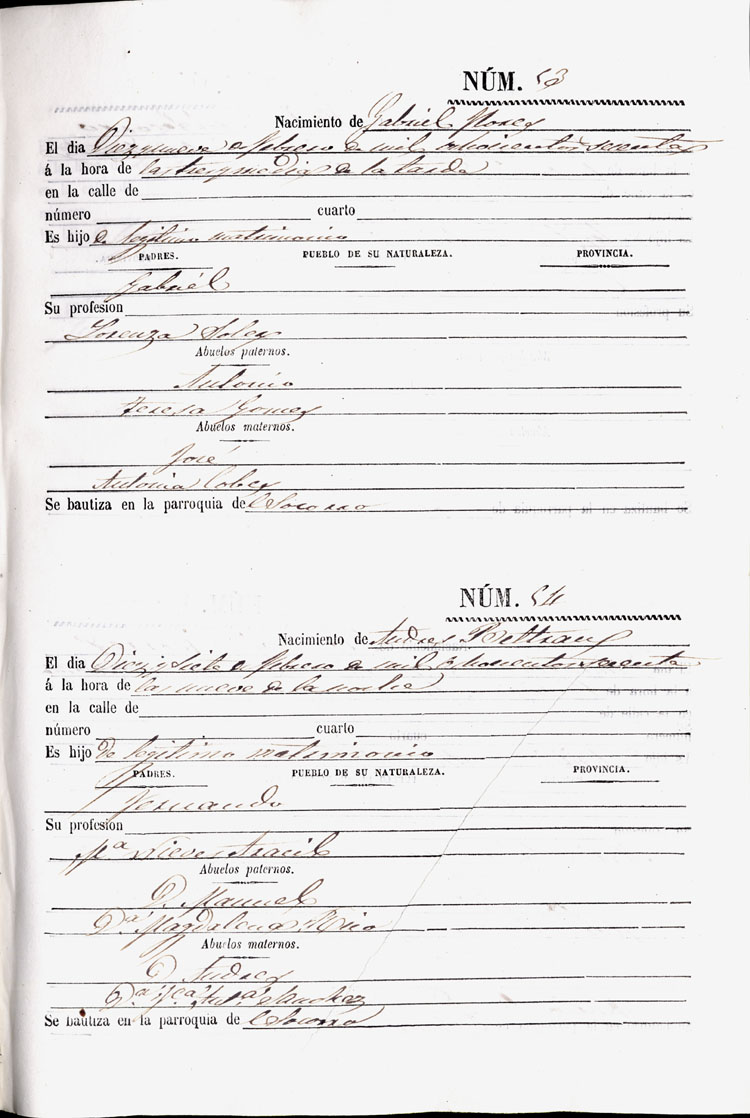 NÚM. 53
Nacimiento de Gabriel Flores
El dia Diez y nueve de febrero de mil ochocientos sesenta
á la hora de las tres y media de la tarde
en la calle de
número cuarto
Es hijo de legitimo matrimonio
PADRES. PUEBLO DE SU NATURALEZA. PROVINCIA.
Gabriél
Su profesion
Lorenza Soler
Abuelos paternos.
Antonio
Teresa Gomez
Abuelos maternos.
José
Antonia
Se bautiza en la parroquia del Socorro
NÚM. 54
Nacimiento de Andres Beltran
El dia Diez y siete de febrero de mil ochocientos sesenta
á la hora de las nueve de la noche
en la calle de
número cuarto
Es hijo de legitimo matrimonio
PADRES. PUEBLO DE SU NATURALEZA. PROVINCIA.
Fernando
Su profesion
Mª Nieves Aracil
Abuelos paternos.
D. Manuel
Dª Magdalena
Abuelos maternos.
D. Andres
Dª Sanchez
Se bautiza en la parroquia de l Socorro